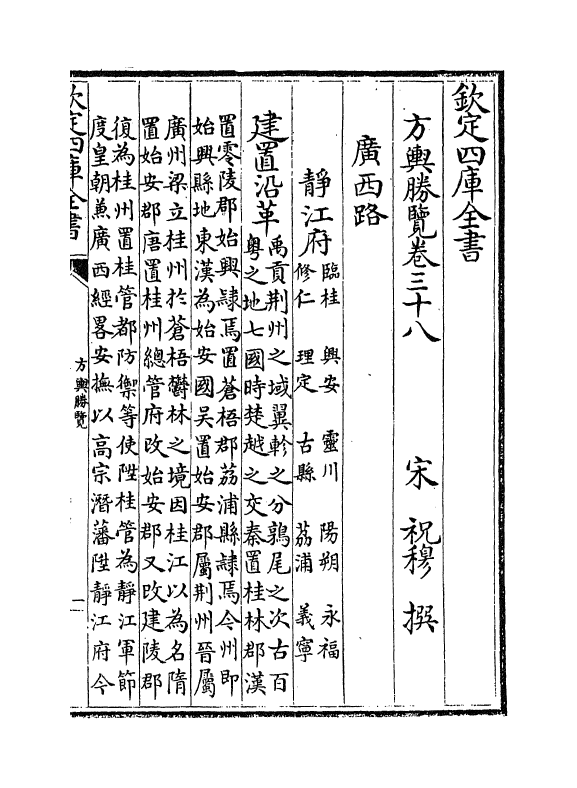 欽定四庫全書
方輿勝覽卷三十八 宋 祝穆 撰
廣西路
靜江府 臨桂 興安 靈川 陽朔 永福
修仁 理定 古縣 荔浦 義寧
建置沿革 禹貢荆州之域翼軫之分鶉尾之次古百
粤之地七國時楚越之交秦置桂林郡漢
置零陵郡始興隷焉置蒼梧郡荔浦縣隷焉今州即
始興縣地東漢為始安國吳置始安郡屬荆州晉屬
廣州梁立桂州於蒼梧鬱林之境因桂江以為名隋
置始安郡唐置桂州總管府改始安郡又改建陵郡
復為桂州置桂管都防禦等使陞桂管為靜江軍節
度皇朝兼廣西經畧安撫以高宗潛藩陞靜江府今
欽定四庫全書
方輿勝覽
一